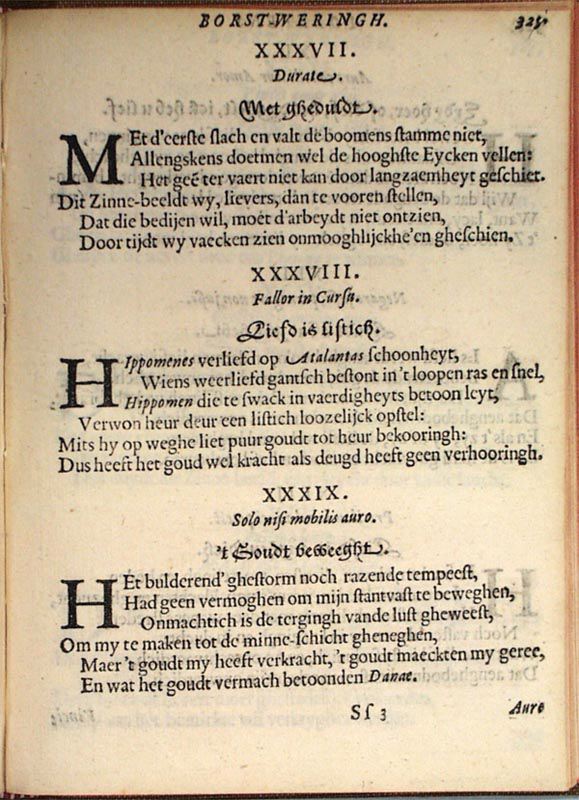 BORST-WERINGH. 325
XXXVII.
Durate.
Met gheduldt.
MEt d'eerste slach en valt de boomens stamme niet,
Allengskens doetmen wel de hooghste Eycken vellen:
Het geē ter vaert niet kan door langzaemheyt geschiet.
Dit Zinne-beeldt wy, lievers, dan te vooren stellen,
Dat die bedijen wil, moet d'arbeydt niet ontzien,
Door tijdt wy vaecken zien onmooghlijckhe'en gheschien.
XXXVIII.
Fallor in Cursu.
Liefd is listich.
HIppomenes verliefd op Atalantas schoonheyt,
Wiens weerliefd gantsch bestont in 't loopen ras en snel,
Hippomen die te swack in vaerdigheyts betoon leyt,
Verwon heur deur een listich loozelijck opstel:
Mits hy op weghe liet puur goudt tot heur bekooringh:
Dus heeft het goud wel kracht als deugd heeft geen verhooringh.
XXXIX.
Solo nisi mobilis auro.
't Goudt beweeght.
HEt bulderend' ghestorm noch razende tempeest,
Had geen vermoghen om mijn stantvast te beweghen,
Onmachtich is de tergingh vande lust gheweest,
Om my te maken tot de minne-schicht gheneghen,
Maer 't goudt my heeft verkracht, 't goudt maeckten my geree,
En wat het goudt vermach betoonden Danae.
Sſ 3 Auro